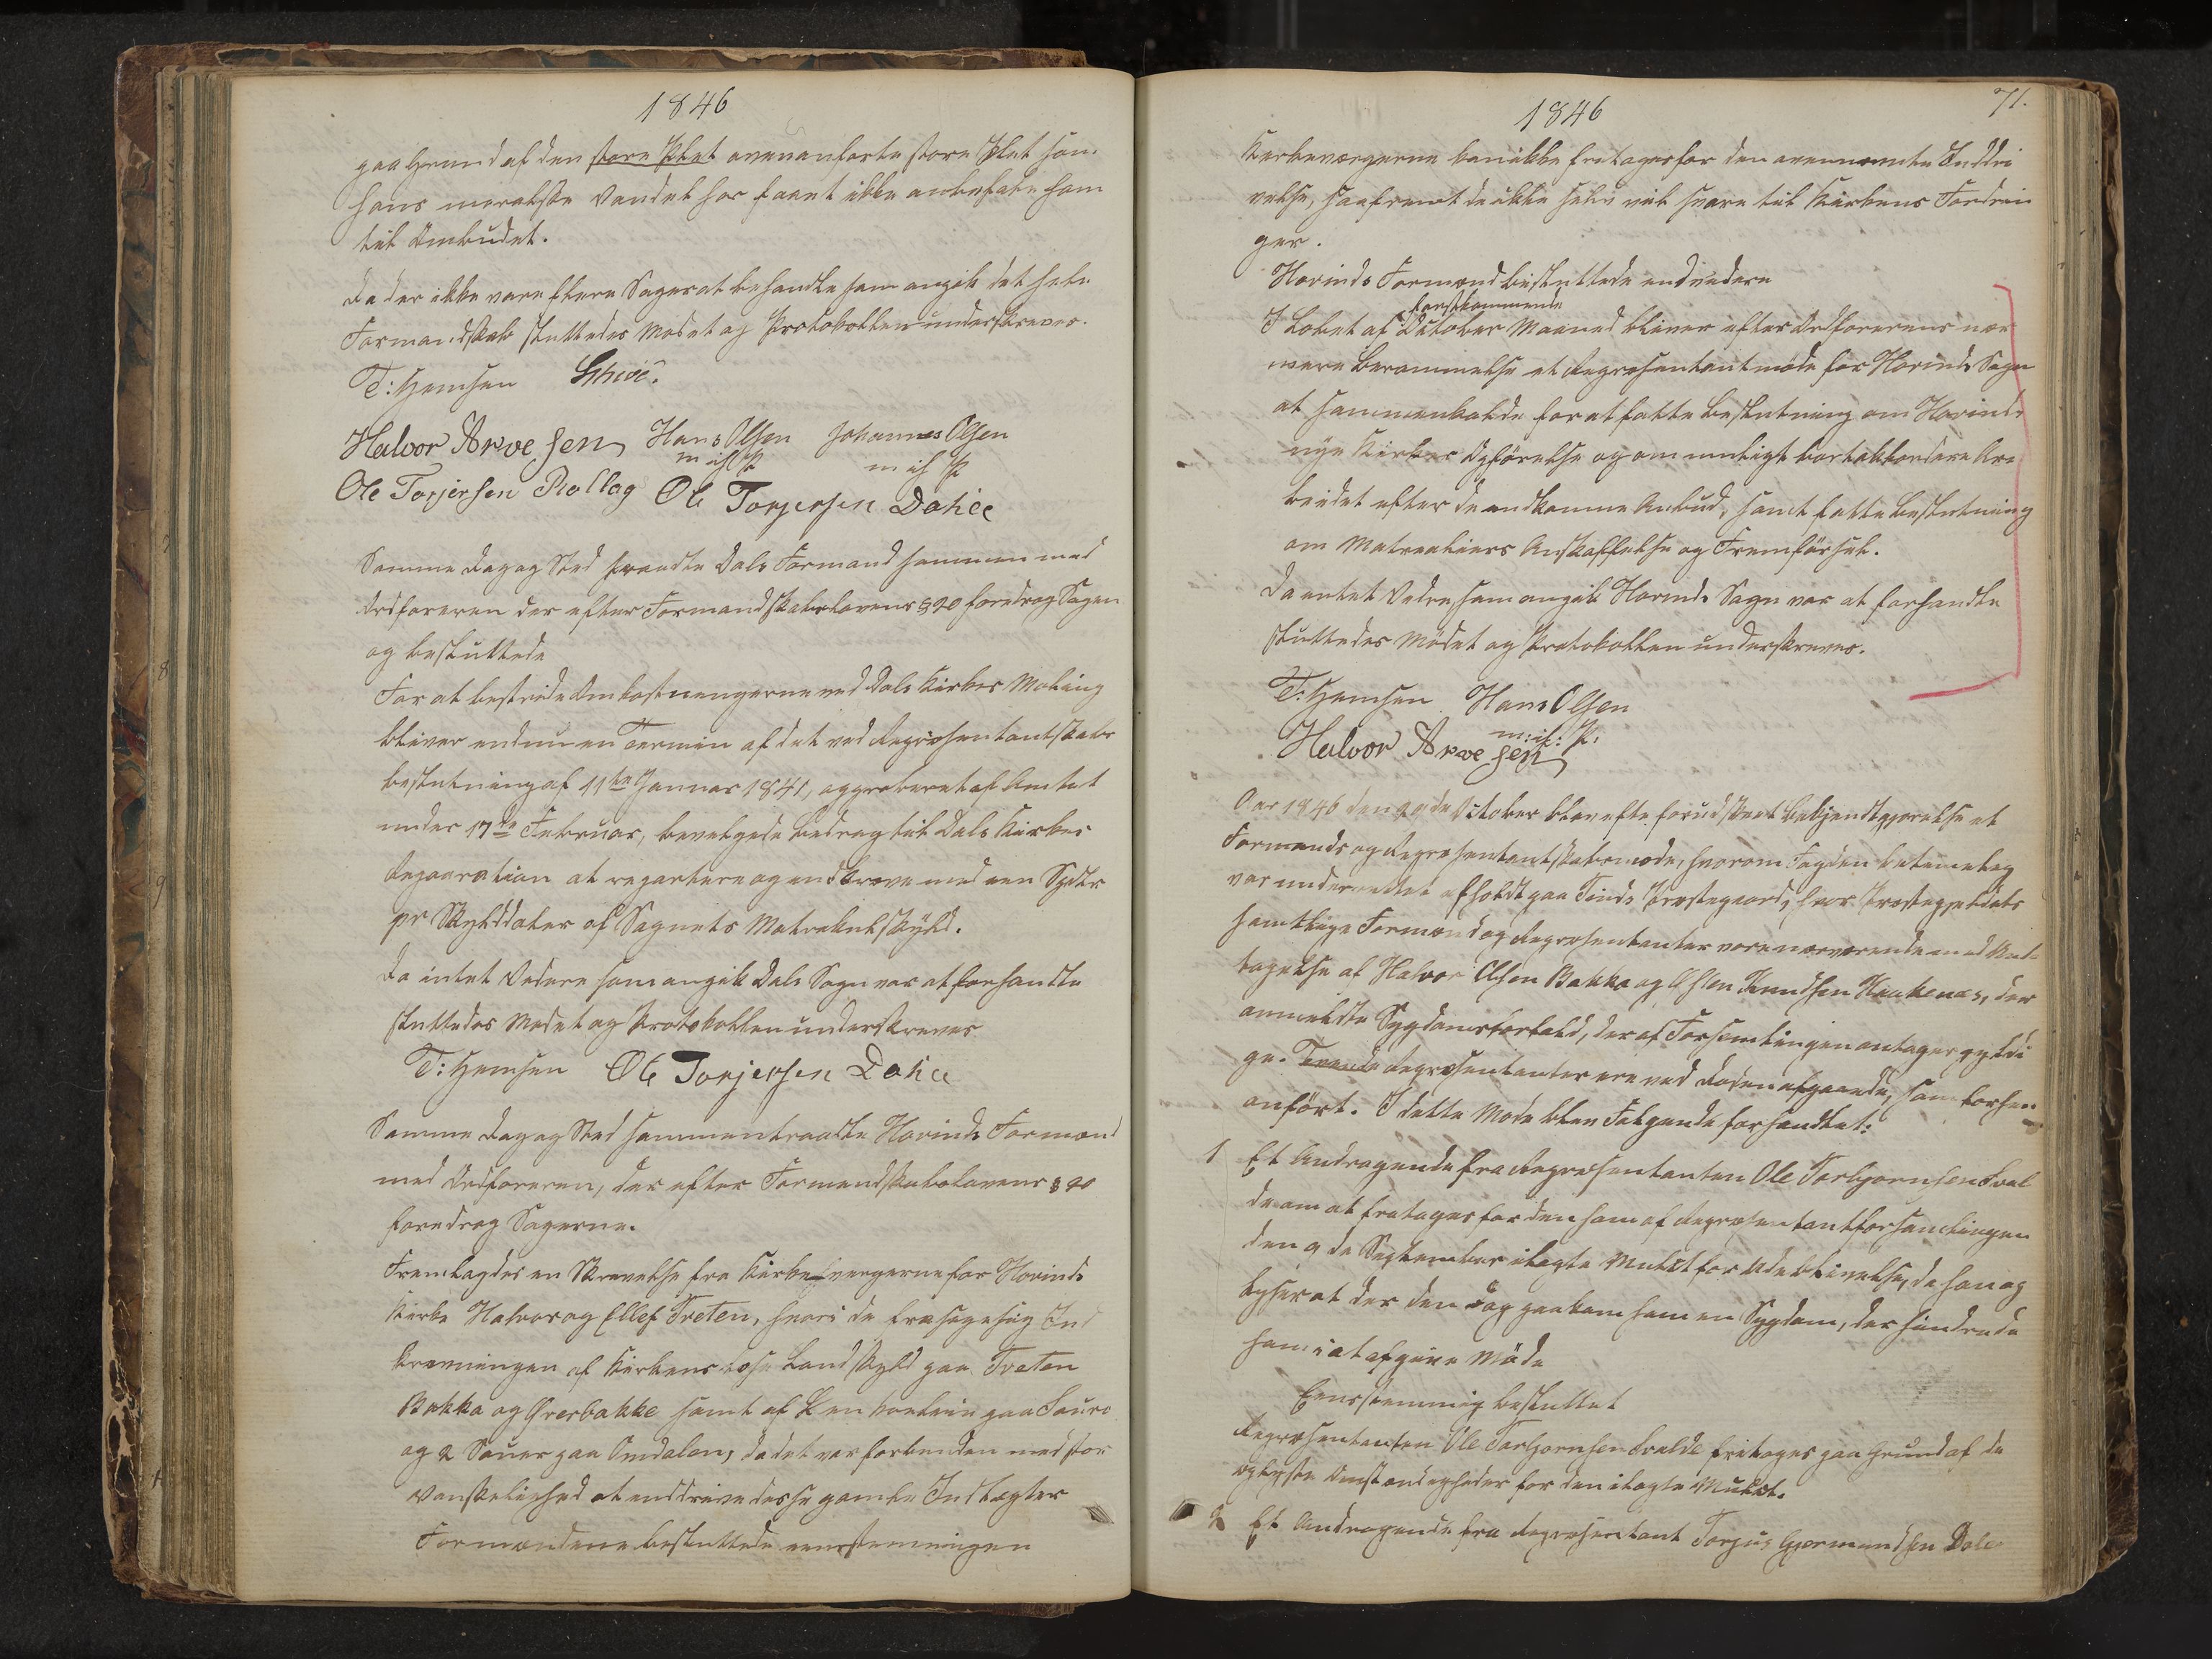 1846
paa Grund af den store Plet ovenanførte store Plet som
hans moralske Vandel har faaet ikke anbefale ham
til Ombudet.
Da der ikke vare flere Sager at behandle som angik det hele
Formandskab sluttedes Mødet og Protokollen underskreves.
T: Hemsen
Halvor Arvesen Hans Olsen Johannes Olsen
m i h P m i h P
Ole Torjersen Rollag Ole Torjersen Dahle
Samme Dag og Sted traadte Dals Formænd sammen med
Ordføreren der efter Formandskabslovens § 20 foredrog Sagen
og besluttede
For at bestride Omkostningerne ved Dals Kirkes Maling
bliver endnu en Termin af det ved Repræsentantskabs
beslutning af 11te Januar 1841, approberet af Amtet
under 17de Februar, bevilgede Bidrag til Dals Kirkes
Reparation at repartere og indkræve med een Spdlr
pr Skylddaler af Sognets Matrikulskyld.
Da intet Videre som angik Dals Sogn var at forhandle
sluttedes Mødet og Protokollen underskreves
T: Hemsen Ole Torjersen Dahle
Samme Dag og Sted sammentraadte Hovinds Formænd
med Ordføreren, der efter Formandskabslovens § 20
foredrog Sagerne.
Fremlagdes en Skrivelse fra Kirkeværgerne for Hovinds
Kirke Halvor og Ellef Træten, hvori de frasige sig Ind
kræv­ningen af Kirkens løse Landskyld paa Træten
Bakka og Øresbakke samt af paa Saure
og 2 Sauer paa Omdalen, da det var forbunden med stor
Vanskelighed at inddrive disse gamle Indtægter
Formændene besluttede eenstemmigen
1846
71.
Kirkeværgerne kan ikke fritages for den ovennævnte Inddri
velse, saafremt de ikke selv vil svare til Kirkens Fordrin
ger.
Hovinds Formænd besluttede endvidere
førstkommende
I Løbet af October Maaned bliver efter Ordførerens nær
mere Berammelse et Repræsentantmøde for Hovinds Sogn
at sammenkalde for at fatte Beslutning om Hovinds
nye Kirkes Opførelse og om muligt bortakkordere Ar
beidet efter de indkomne Anbud, samt fatte Beslutning
om Materialiers Anskaffelse og Fremførsel.
Da intet Videre som angik Hovinds Sogn var at forhandle
sluttedes Mødet og Protokollen underskreves.
T: Hemsen Hans Olsen
m: i h: P:
Halvor Arvesen
Aar 1846 den October blev efter forudskeet Bekjendtgjørelse et
Formands og Repræsentantskabsmøde, hvorom Fogden betimelig
var underrettet afholdt paa Tinds Præstegaard, hvor Præstegjeldets
samtlige Formænd og Repræsentanter vare nærværende med Und
tagelse af Halvor Olsen Bakka og Knudsen Haakenæs, der
anmeldte Sygdomsforfald, der af Forsamlingen antages gyldi
ge. Repræsentanter ere ved Døden afgaaede, som forhen
anført. I dette Møde blev Følgende forhandlet:
1 Et Andragende fra Repræsentanten Ole Torbjørnsen Qval
de om at fritages for den ham af Repræsentantforsamlingen
den 9de September ilagte Mulkt for Udeblivelse, da han op
lyser at der den Dag paakom ham en Sygdom, der hindrede
ham i at afgive Møde
Eenstemmig besluttet
Repræsentanten Ole Torbjørnsen Qvalde fritages paa Grund af de
oplyste Omstændigheder for den ilagte Mulkt.
2 Et Andragende fra Repræsentant Torjus Gjermundsen Dale